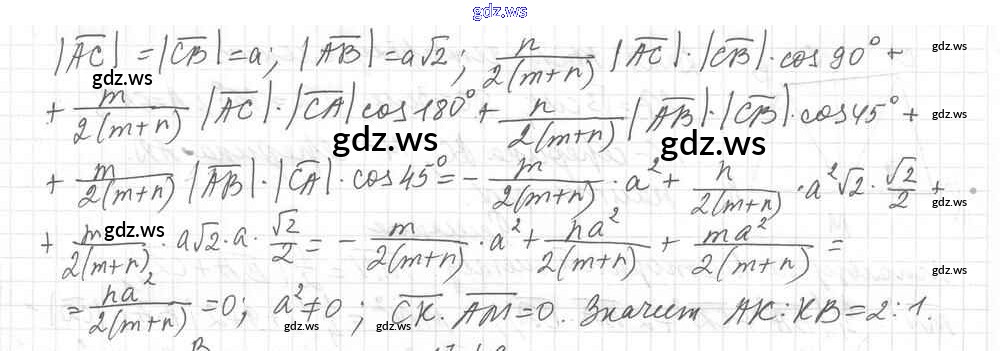 gdz.ws
|AC| = |CB| = a; |AB| = a√2; n/2(m+n) |AC|·|CB|·cos 90° +
gdz.ws gdz.ws
+ m/2(m+n) |AC|·|CA| cos 180° + n/2(m+n) |AB|·|CB|·cos 45° +
gdz.ws gdz.ws
+ m/2(m+n) |AB|·|CA|·cos 45° = - m/2(m+n) · a² + n/2(m+n) · a²√2 · √2/2 +
gdz.ws gdz.ws
+ m/2(m+n) · a√2 · a · √2/2 = - m/2(m+n) · a² + na²/2(m+n) + ma²/2(m+n) =
gdz.ws
= na²/2(m+n) = 0; a² ≠ 0; CK · AM = 0. Значит AK : KB = 2 : 1.
gdz.ws gdz.ws gdz.ws